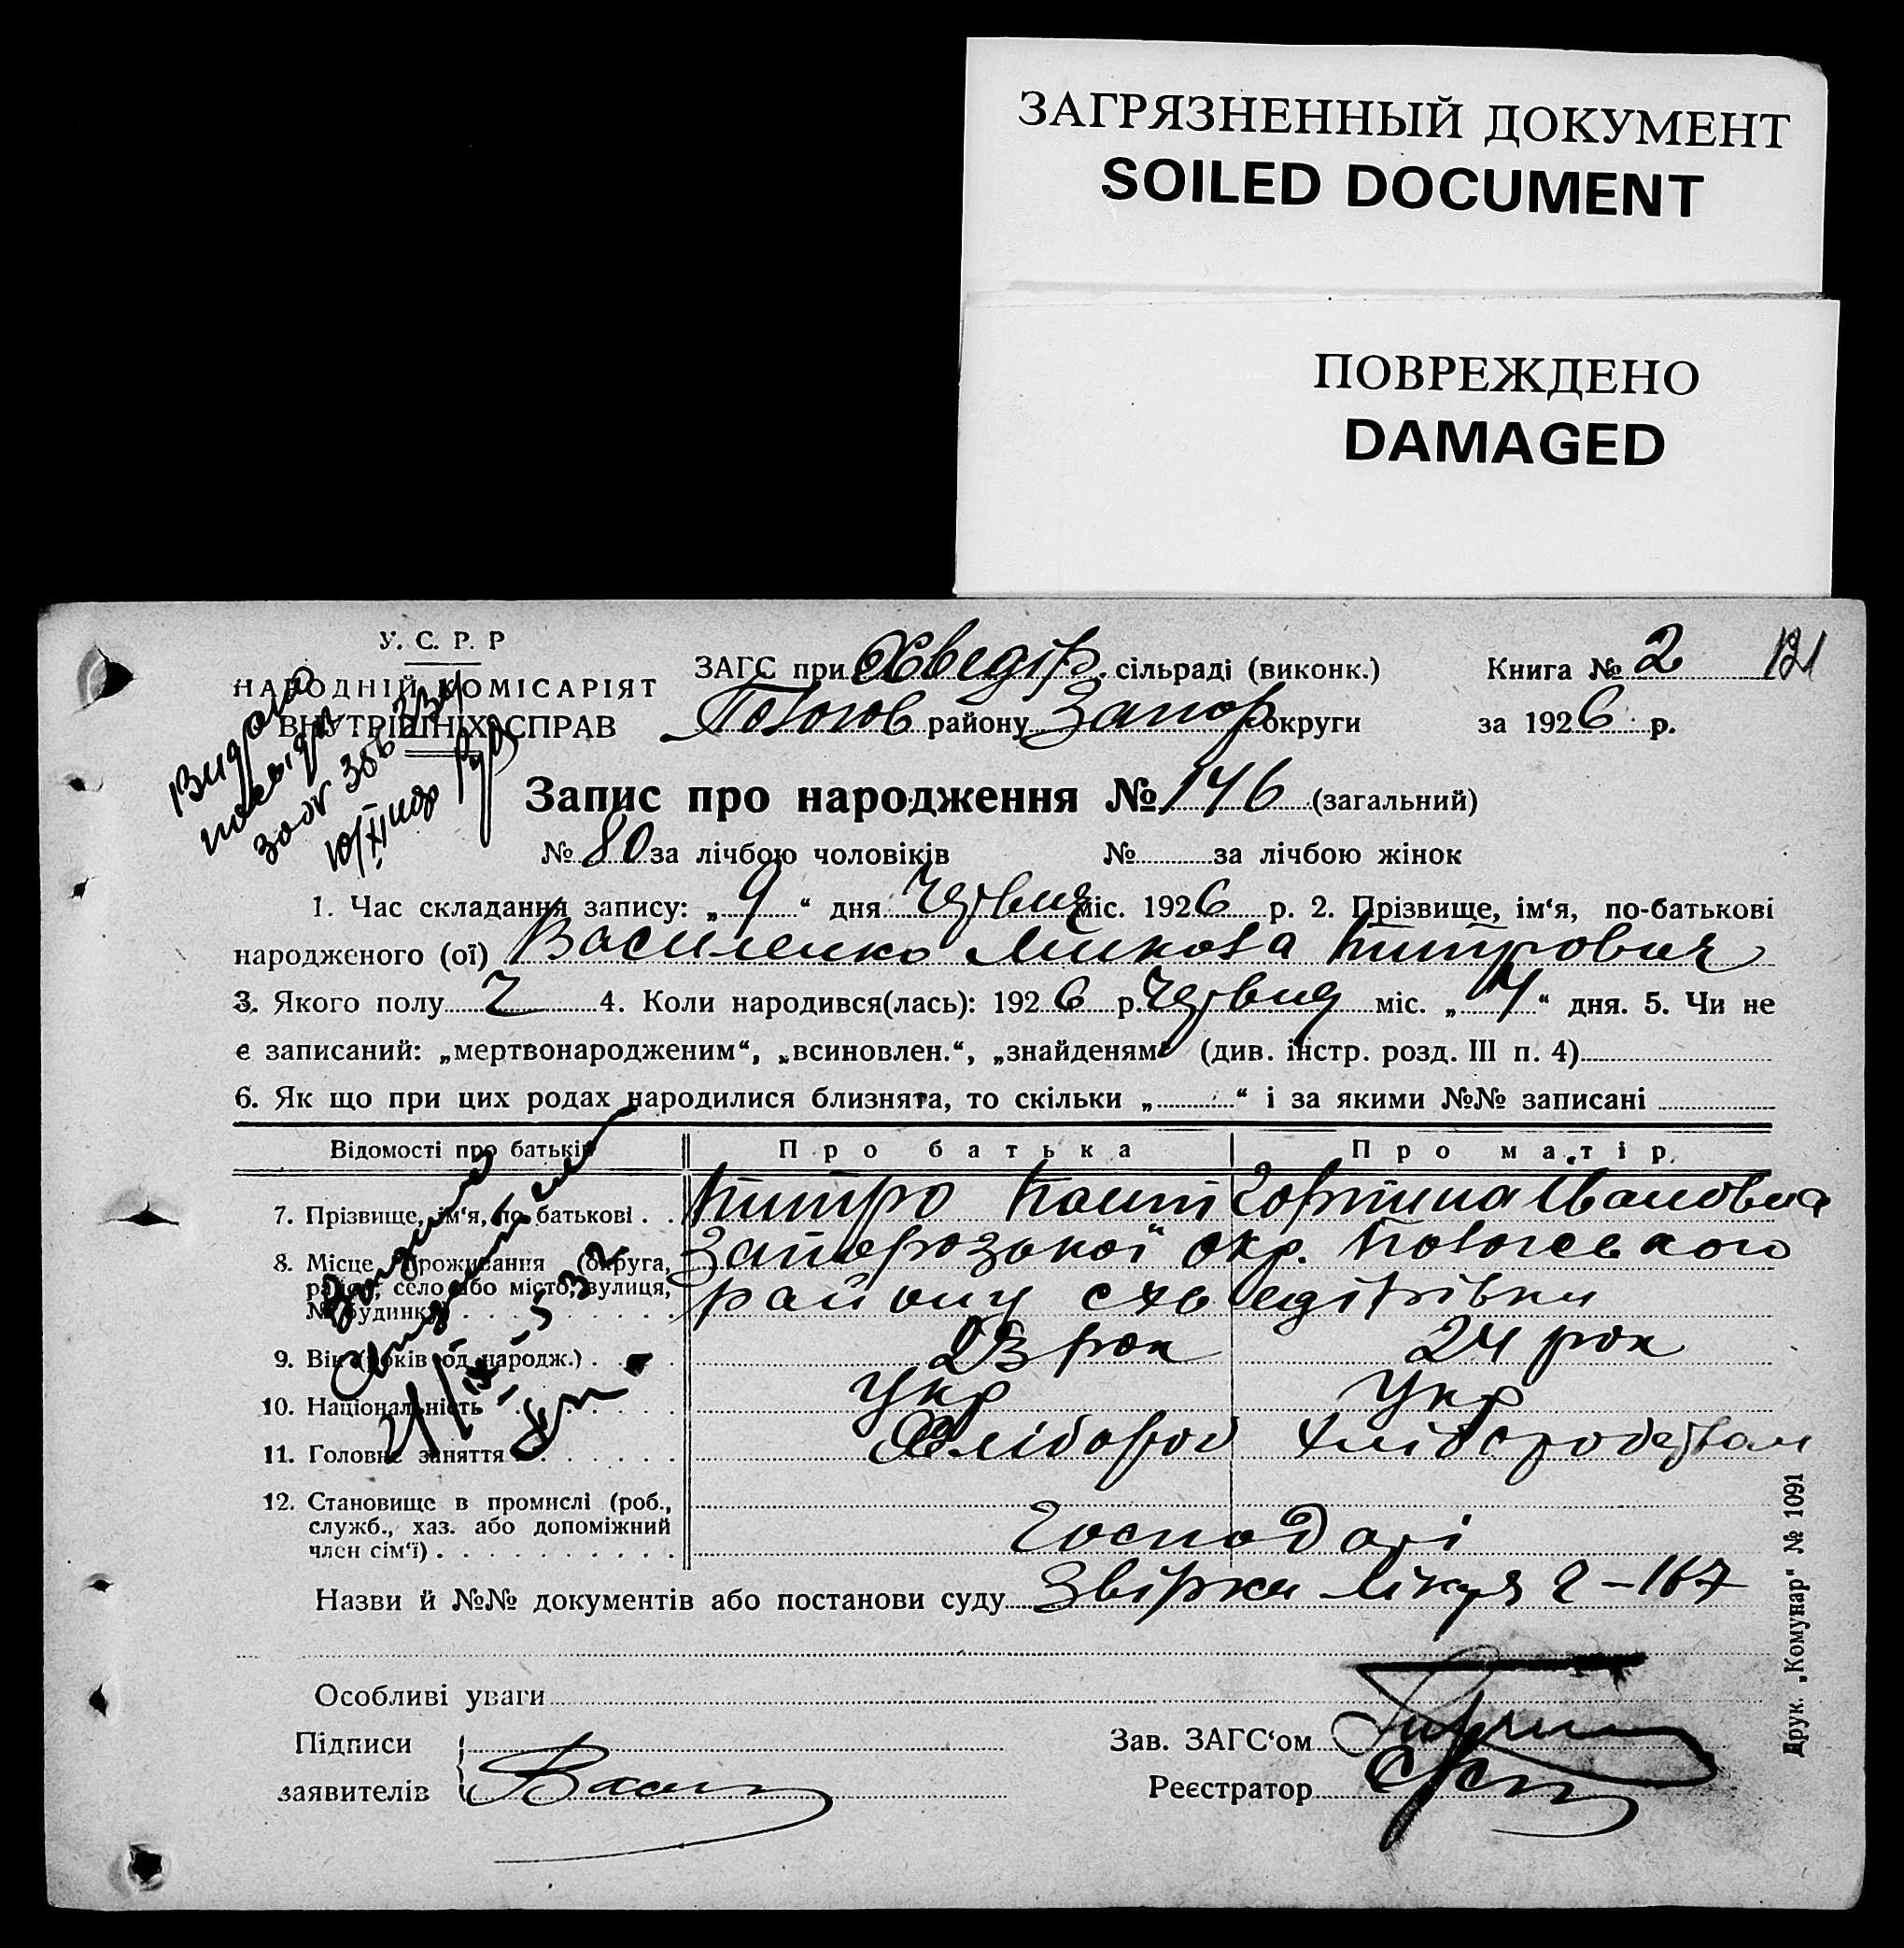 ЗАГРЯЗНЕННЫЙ ДОКУМЕНТ
SOILED DOCUMENT
ПОВРЕЖДЕНО
DAMAGED
У. С. Р. Р
НАРОДНІЙ КОМІСАРІЯТ
ВНУТРІШНІХ СПРАВ
ЗАГС при Хведір. сільраді (виконк.)
Пологов району Запор округи
Книга № 2 121
за 1926 р.
Видано
Запис про народження № 146 (загальний)
№ 80 за лічбою чоловіків № за лічбою жінок
1. Час складання запису: „ 9 “ дня червня міс. 1926 р. 2. Прізвище, ім‘я, по-батькові
народженого (ої) Василенко Микола Питрович
3. Якого полу Ч 4. Коли народився(лась): 1926 р. червня міс. „ 4 “ дня. 5. Чи не
є записаний: „мертвонародженим“, „всиновлен.“, „знайденям“ (див. інстр. розд. III п. 4)
6. Як що при цих родах народилися близнята, то скільки „ “ і за якими №№ записані
Відомості про батьків Про батька Про матір
7. Прізвище, ім‘я, по батькові Питро Горпина Івановна
8. Місце проживання (округа, район, село або місто, вулиця, № будинку) Запорозької окр. Пологовского
району с Хведірівки
9. Вік (років од народж.) 23 рок 24 рок
10. Національність Укр Укр
11. Головне заняття Хлібороб
12. Становище в промислі (роб., служб., хаз. або допоміжний член сім‘ї) Господарі
Назви й №№ документів або постанови суду Звірки 167
Особливі уваги
Підписи
заявителів Васил
Зав. ЗАГС‘ом
Реєстратор
Друк. „Комунар“ № 1091